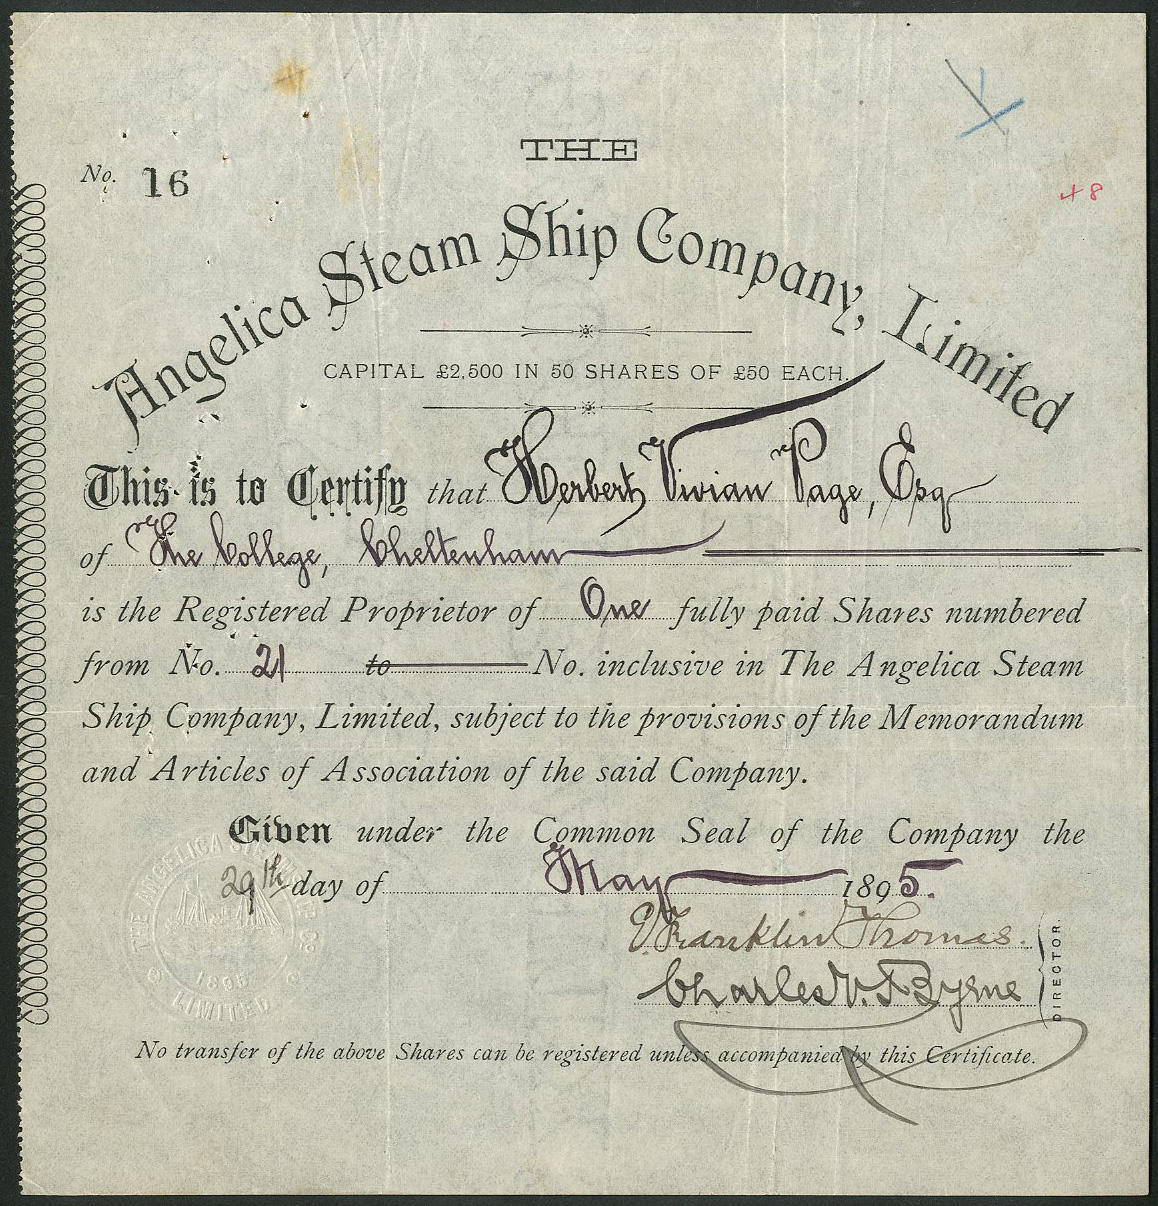 THE
No. 16
48
Angelica Steam Ship Company, Limited
CAPITAL £2,500 IN 50 SHARES OF £50 EACH.
This is to Certify that Herbert Vivian Page, Esq
of The College, Cheltenham
is the Registered Proprietor of One fully paid Shares numbered
from No. 21 to No. inclusive in The Angelica Steam
Ship Company, Limited, subject to the provisions of the Memorandum
and Articles of Association of the said Company.
Given under the Common Seal of the Company the
29th day of May 1895.
THE ANGELICA STEAM SHIP Co
1895
LIMITED
Franklin Thomas.
Charles Byrne
DIRECTOR.
No transfer of the above Shares can be registered unless accompanied by this Certificate.